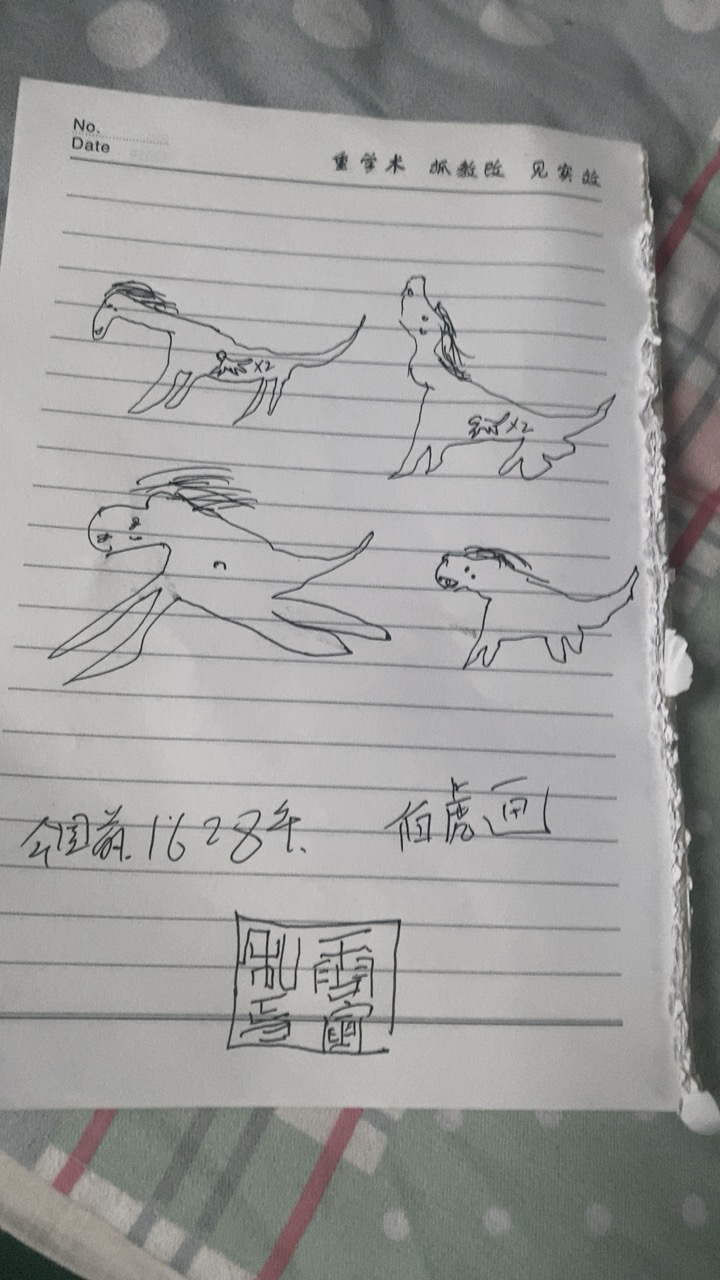 No.
Date
重学术 抓教改 见实效
X2
X2
公园前.1628年.
伯虎画